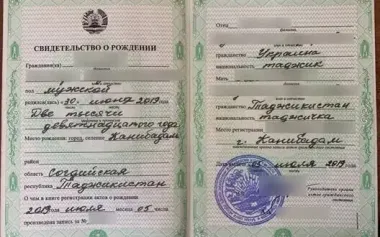 СВИДЕТЕЛЬСТВО О РОЖДЕНИИ
Гражданин(ка)
пол мужской
родился(лась) «30» июня 2019
Две тысячи
девятнадцатого года
Место рождения: город, селение Канибадам
район
область Согдийская
республика Таджикистан
О чем в книге регистрации актов о рождении
2019 года июля месяца 05 числа
произведена запись за №
Отец
Украина
гражданство таджик
Мать
гражданство Таджикистан
таджичка
Место регистрации
г. Канибадам
Дата выдачи «05» июля 2019